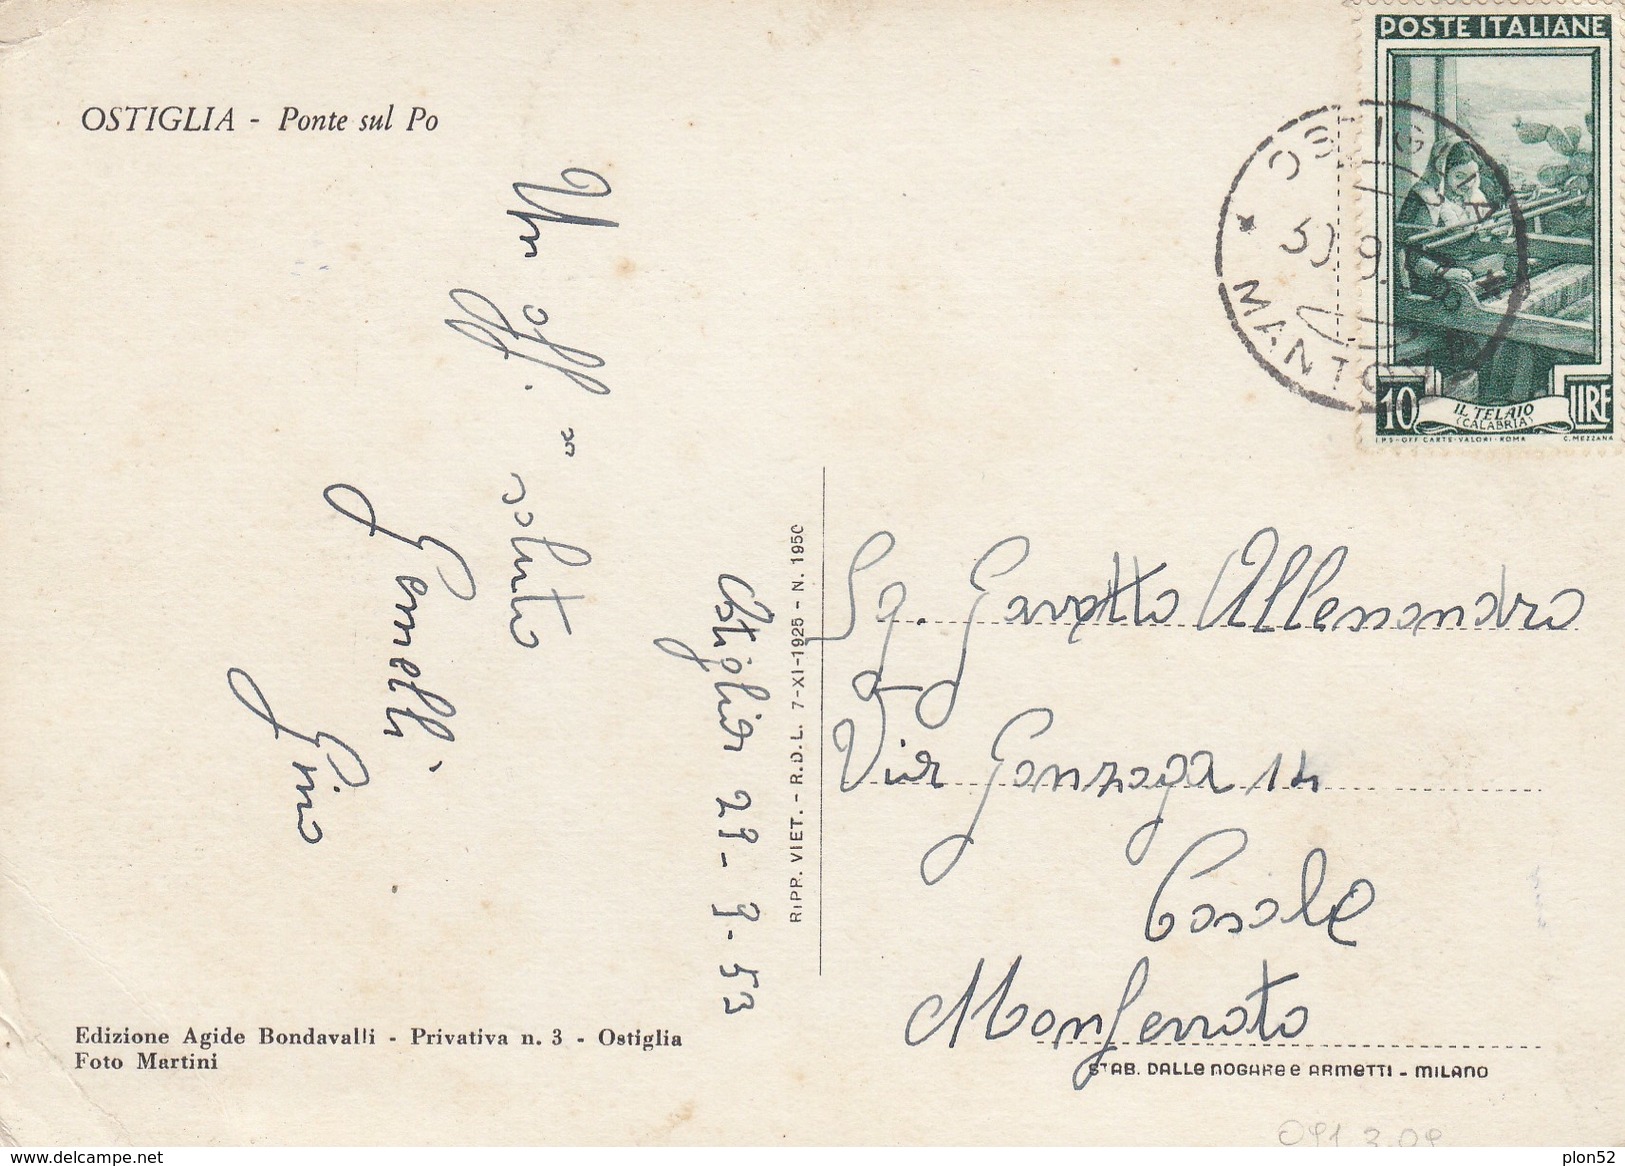 POSTE ITALIANE
OSTIGLIA - Ponte sul Po
OSTIGLIA
30.9.
MANTOVA
10 LIRE
IL TELAIO
(CALABRIA)
I.P.S-OFF. CARTE-VALORI-ROMA C. MEZZANA
Un aff.
saluto
Gemelli
Gino
Ostiglia 29-9-53
RIPR. VIET. - R.D.L. 7-XI-1925 - N. 1950
Sg. Gavatto Allesandro
Via Gonzaga 14
Casale
Monferrato
Edizione Agide Bondavalli - Privativa n. 3 - Ostiglia
Foto Martini
STAB. DALLE NOGARE E ARMETTI - MILANO
091 3.09
plon52